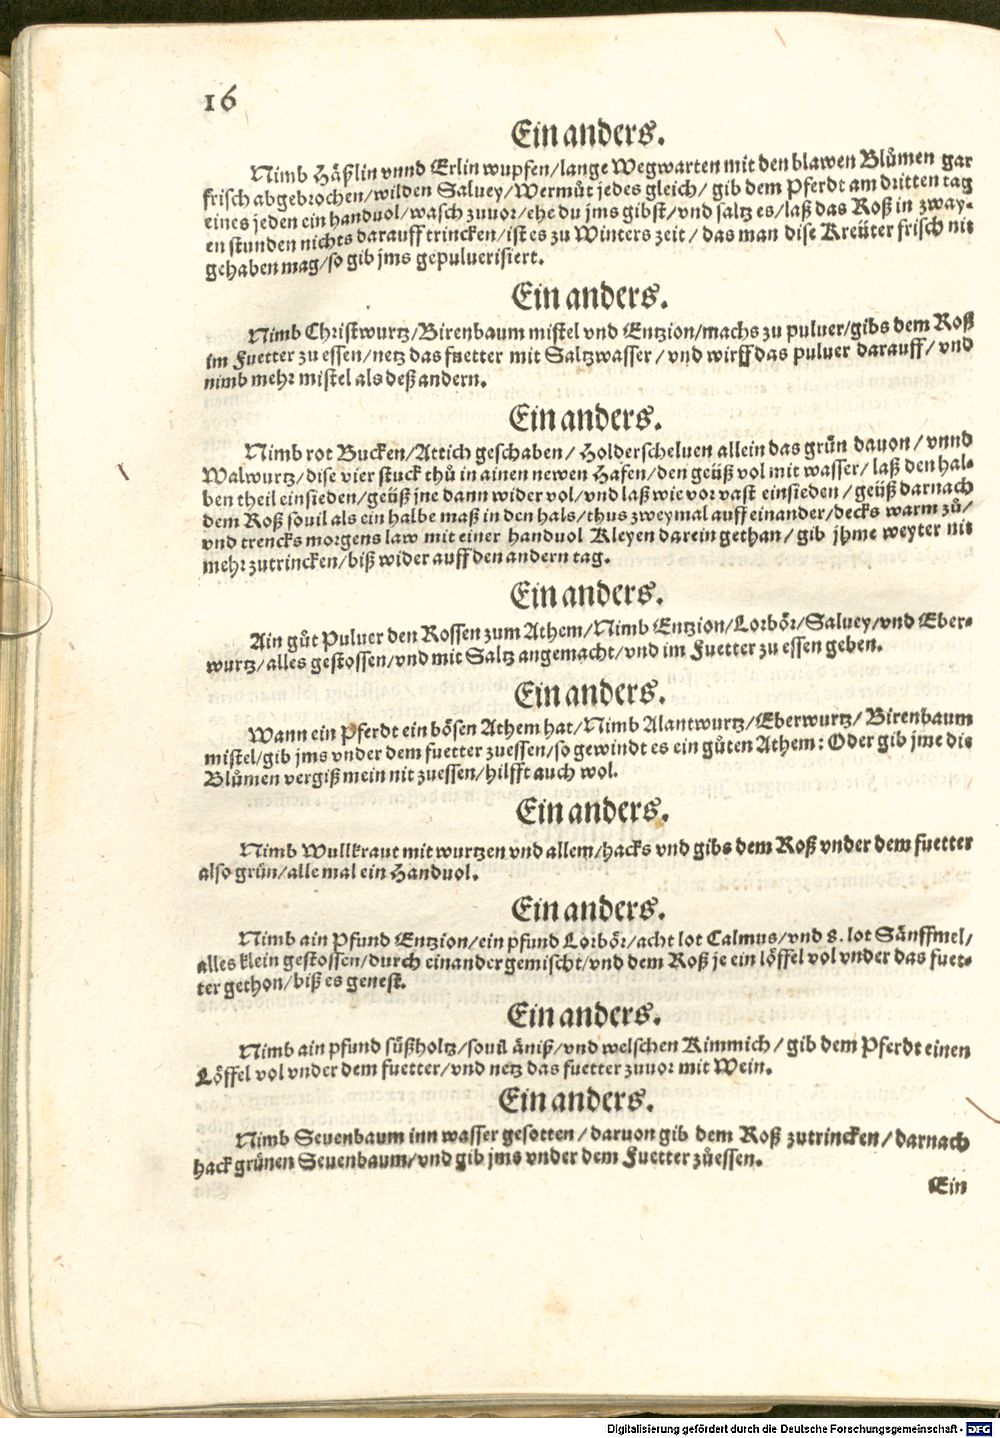 16
Ein anders.
Nimb Häßlin vnnd Erlin wupfen/lange Wegwarten mit den blawen Blůmen gar
frisch abgebrochen/wilden Saluey/Wermůt jedes gleich/ gib dem Pferdt am dritten tag
eines jeden ein handuol/wasch zuuor/ehe du jms gibst/vnd saltz es/laß das Roß in zway-
en stunden nichts darauff trincken/ist es zu Winters zeit/ das man dise Kreüter frisch nit
gehaben mag/so gib jms gepuluerisiert.
Ein anders.
Nimb Christwurtz/Birenbaum mistel vnd Entzion/machs zu puluer/gibs dem Roß
im Fuetter zu essen/netz das fuetter mit Saltzwasser/ vnd wirff das puluer darauff/ vnd
nimb mehr mistel als deß andern.
Ein anders.
Nimb rot Bucken/Attich geschaben/ Holderscheluen allein das grün dauon/ vnnd
Walwurtz/dise vier stuck thů in ainen newen Hafen/den geüß vol mit wasser/ laß den hal-
ben theil einsieden/geüß jne dann wider vol/vnd laß wie vor vast einsieden/ geüß darnach
dem Roß souil als ein halbe maß in den hals/thus zweymal auff einander/decks warm zů/
vnd trencks morgens law mit einer handuol Kleyen darein gethan/ gib jhme weyter nit
mehr zutrincken/biß wider auff den andern tag.
Ein anders.
Ain gůt Puluer den Rossen zum Athem/Nimb Entzion/Lorbör/Saluey/vnd Eber-
wurtz/alles gestossen/vnd mit Saltz angemacht/vnd im Fuetter zu essen geben.
Ein anders.
Wann ein Pferdt ein bösen Athem hat/Nimb Alantwurtz/Eberwurtz/ Birenbaum
mistel/gib jms vnder dem fuetter zuessen/so gewindt es ein gůten Athem: Oder gib jme die
Blůmen vergiß mein nit zuessen/hilfft auch wol.
Ein anders.
Nimb Wullkraut mit wurtzen vnd allem/hacks vnd gibs dem Roß vnder dem fuetter
also grün/alle mal ein Handuol.
Ein anders.
Nimb ain Pfund Entzion/ein pfund Lorbör/acht lot Calmus/vnd 8. lot Sänffmel/
alles klein gestossen/durch einander gemischt/vnd dem Roß je ein löffel vol vnder das fuet-
ter gethon/biß es genest.
Ein anders.
Nimb ain pfund süßholtz/souil äniß/vnd welschen Kimmich/ gib dem Pferdt einen
Löffel vol vnder dem fuetter/vnd netz das fuetter zuuor mit Wein.
Ein anders.
Nimb Seuenbaum inn wasser gesotten/ daruon gib dem Roß zutrincken/ darnach
hack grünen Seuenbaum/vnd gib jms vnder dem Fuetter zůessen.
Ein
Digitalisierung gefördert durch die Deutsche Forschungsgemeinschaft - DFG